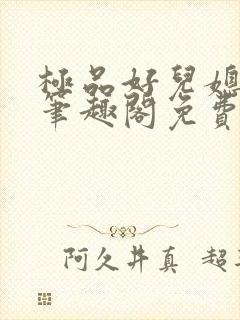 極品好兒媳
筆趣閣免費
阿久井真 超